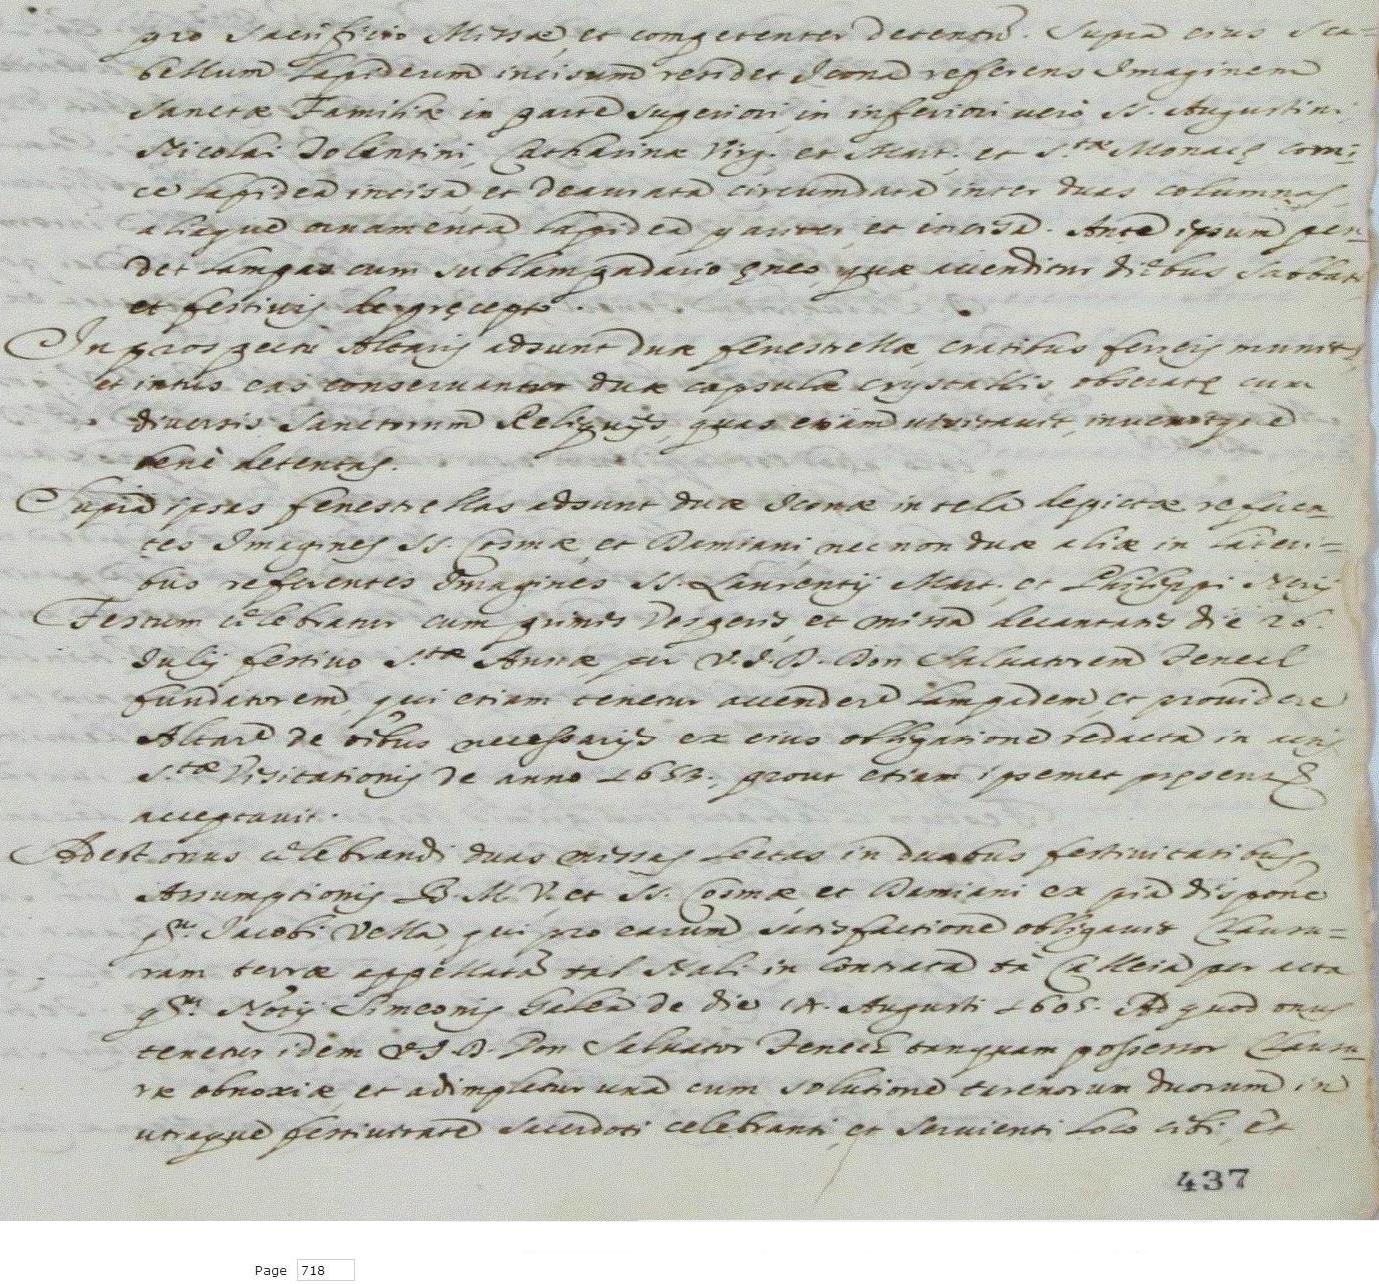 pro Sacrificio Missæ, et competenter detentũ. Supra eius sca=
bellum lapideum incisum residet Icona referens Imaginem
Sanctæ Familiæ in parte superiori, in inferiori vero SS. Augustini,
Nicolai Tolentini, Catharinæ Virg. et Mart. et S.tæ Monacę corni=
ce lapidea incisa, et deaurata circumdata inter duas columnas,
aliaque ornamenta lapidea pariter et incisa. Ante ipsum pen=
det lampas cum sublampadario ęneo, quæ accenditur diebus Sabbati,
et festivis de pręcepto.
In prospectu Altaris adsunt duæ fenestrellæ cratibus ferreis munitę,
et intus eas conservantur duæ capsulæ crystallis obseratę cum
diversis Sanctorum Reliquijs, quas etiam visitavit, invenitque
benè detentas.
Supra ipsas fenestrellas adsunt duæ Iconæ in tela depictæ referen=
tes Imagines SS. Cosmæ, et Damiani, nec non duæ aliæ in lateri=
bus referentes Imagines SS. Laurentij Mart., et Philippi Nerij
Festum celebratur cum primis Vesperis, et missa decantatis die 26.
Julij festivo S.tæ Annæ per V.I.D. Don Salvatorem Fenech
fundatorem, qui etiam tenetur accendere lampadem, et providere
Altare de oĩbus necessarijs ex eius obligatione redacta in actis
S.tæ Visitationis de anno 1653., prout etiam ipsemet pręsens
acceptavit.
Adest onus celebrandi duas missas lectas in duabus festivitatibus
Assumptionis B.M.V. et SS. Cosmæ, et Damiani ex pia dispone
qm. Jacobi Vella, qui pro earum satisfactione obligavit Clausu=
ram terræ appellatã tal Hali in contrata ta Calleia per acta
qm. Norij Simeonis Galea de die Augusti 1605. Ad quod onus
tenetur idem V.I.D. Don Salvator Fenech tanquam possessor Clausu=
ræ obnoxiæ et adimpletur una cum solutione tarenorum duorum in
utraque festivitate sacerdoti celebranti, et servienti loco cibi, et
437
Page 718